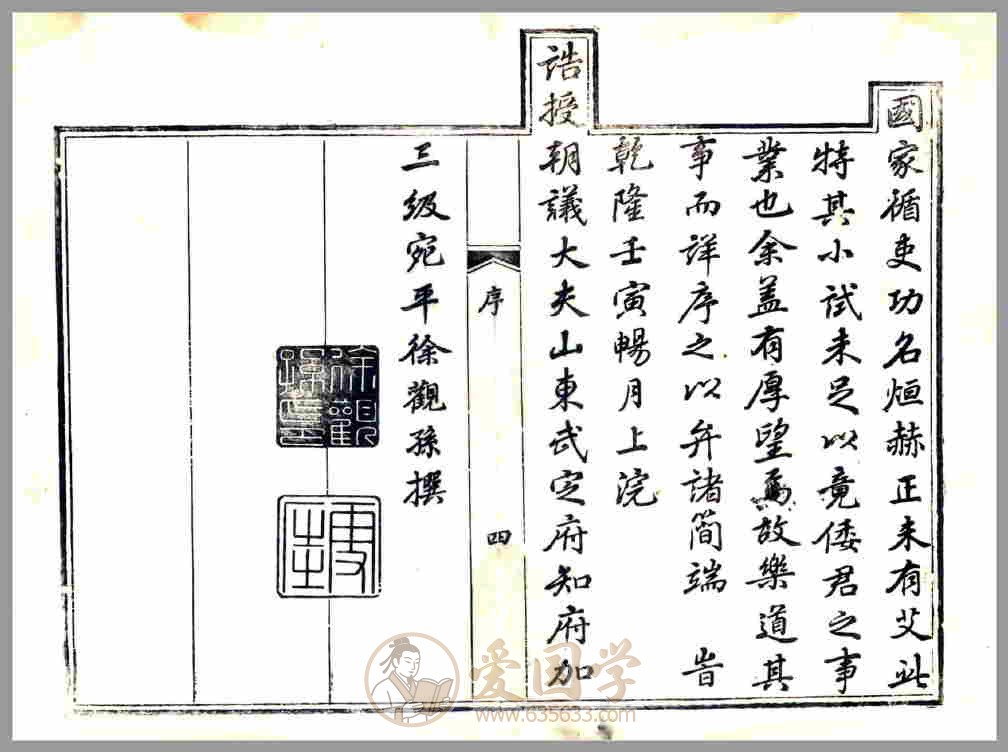 國家循吏功名烜赫正未有艾此
特其小試未足以竟倭君之事
業也余盖有厚望焉故樂道其
事而詳序之以弁諸简端 旹
乾隆壬寅暢月上浣
誥授
朝議大夫山東武定府知府加
序
四
三级宛平徐觀孫撰
徐觀孫印
爱国学
www.635633.com